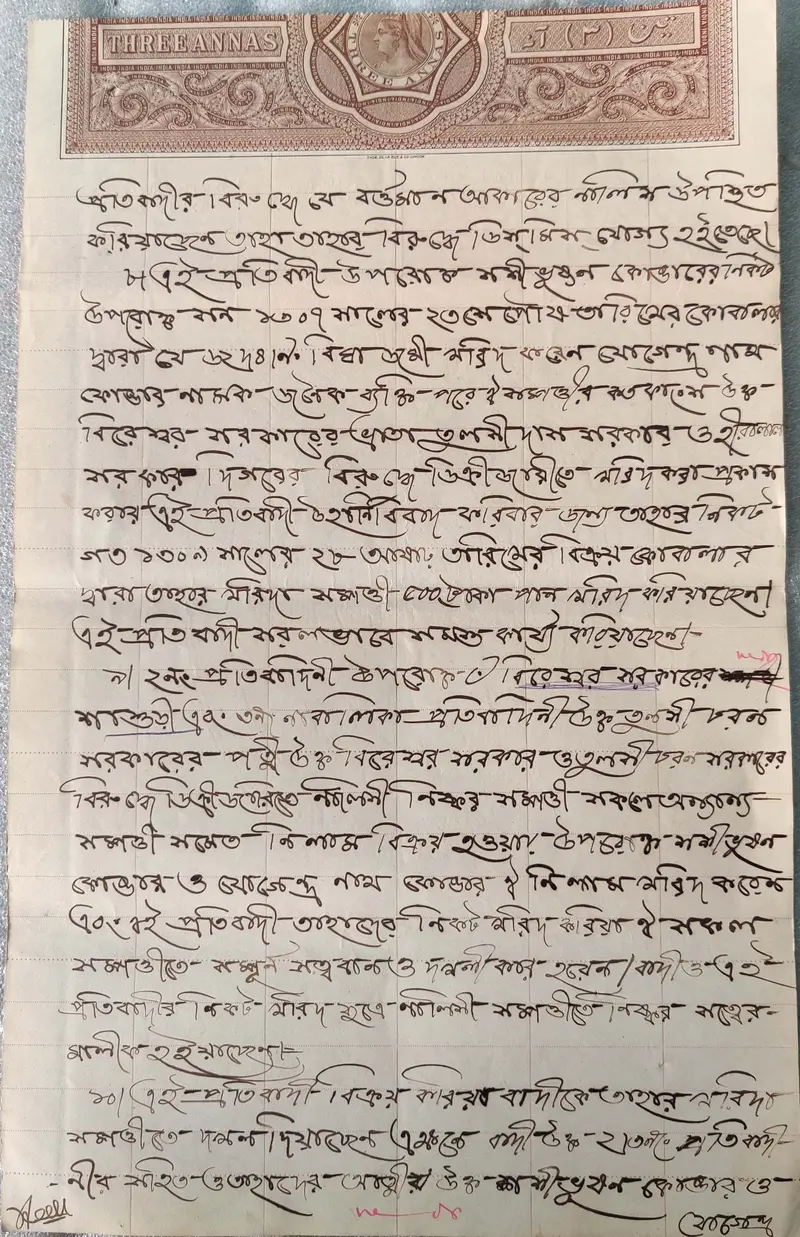 THREE ANNAS
প্রতিবাদীর বিরুদ্ধে যে বর্ত্তমান আকারের নালিস উপস্থিত
করিয়াছেন তাহা তাহার বিরুদ্ধে ডিস্‌মিস্‌ যোগ্য হইতেছে।
৮। এই প্রতিবাদী উপরোক্ত শশীভুষন কোঙারের নিকট
উপরোক্ত সন ১৩০৭ সালের ২৩সে পৌষ তারিখের কোবালার
দ্বারা যে বিঘা জমী খরিদ করেন যোগেন্দ্র নাথ
কোঙার নামক জনৈক ব্যক্তি পরে ঐ সম্পত্তীর কতকাংশ উক্ত
বিরেশ্বর সরকারের ভ্রাতা তুলসী দাস সরকার ও হীরালাল
সরকার দিগরের বিরুদ্ধে ডিক্রীজারীতে খরিদ করা প্রকাশ
করায় এই প্রতিবাদী উহা নির্ব্বিবাদ করিবার জন্য তাহার নিকট
গত ১৩০৯ সালের ২৮ আষাঢ় তারিখের বিক্রয় কোবালার
দ্বারা তাহার খরিদা সম্পত্তী ৫০০ টাকা পনে খরিদ করিয়াছেন।
এই প্রতিবাদী সরলভাবে সমস্ত কার্য্য করিয়াছেন।
৯। ২নং প্রতিবাদিনী উপরোক্ত বিরেশ্বর সরকারের
শাশুড়ী এবং ৩নং নাবালিকা প্রতিবাদিনী উক্ত তুলসী চরন
সরকারের পত্নী উক্ত বিরেশ্বর সরকার ও তুলসী চরন সরকারের
বিরুদ্ধে ডিক্রীজারীতে নালিসী নিষ্কর সম্পত্তী সকল অন্যান্য
সম্পত্তী সমেত নিলাম বিক্রয় হওয়ায় উপরোক্ত শশীভুষন
কোঙার ও যোগেন্দ্র নাথ কোঙার ঐ নিলাম খরিদ করেন
এবং এই প্রতিবাদী তাহাদের নিকট খরিদ করিয়া ঐ সকল
সম্পত্তীতে সম্পূর্ন সত্ববান ও দখলীকার হয়েন। বাদীও এই
প্রতিবাদীর নিকট খরিদ সুত্রে নালিসী সম্পত্তীতে নিষ্কর সত্বের
মালীক হইয়াছেন।
১০। এই প্রতিবাদী বিক্রয় করিয়া বাদীকে তাহার খরিদা
সম্পত্তীতে দখল দিয়াছেন এক্ষনে বাদী উক্ত ২।৩নং প্রতিবাদী
নীর সহিত ও তাহাদের আত্মীয় উক্ত শশীভুষন কোঙার ও
যোগেন্দ্র